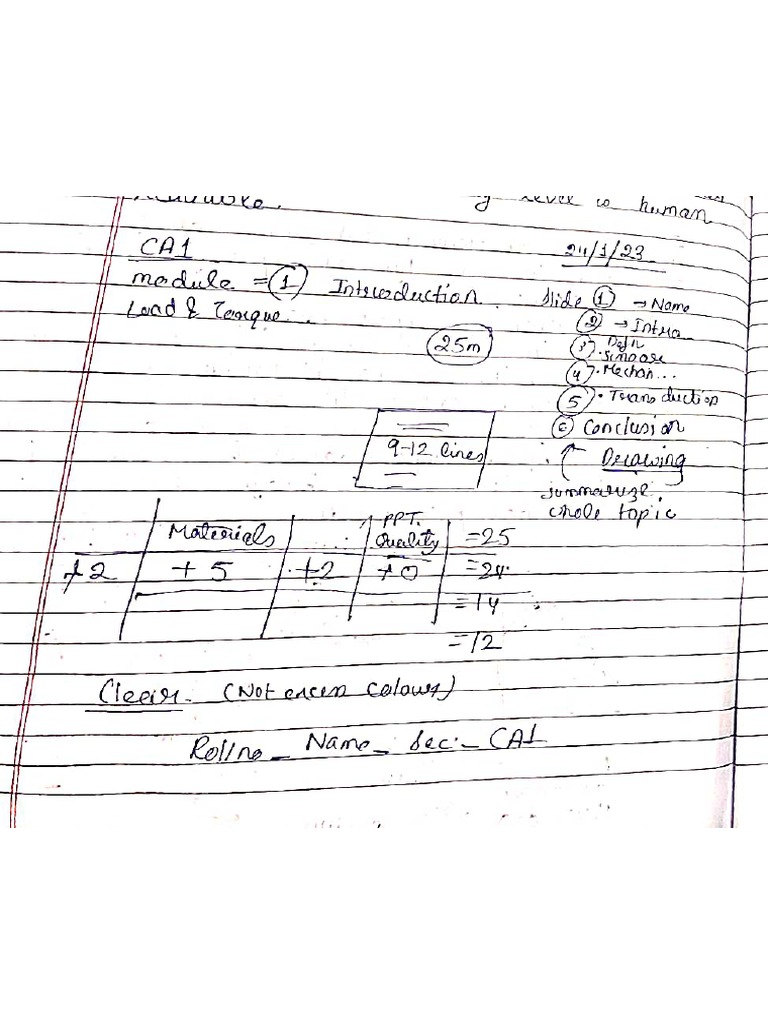 level is human
CA1
24/1/23
module = 1 Introduction
Load & Torque...
25m
Slide 1 → Name
2 → Intro
3 Defn
4 • Mechan...
5 • Transduction
6 Conclusion
Drawing
summarize
whole topic
9-12 lines
Materials
PPT.
Quality
+2 +5 +2 +0
=25
=24
=14
=12
Clear. (Not excess Colours)
Rollno_ Name_ Sec._ CA1